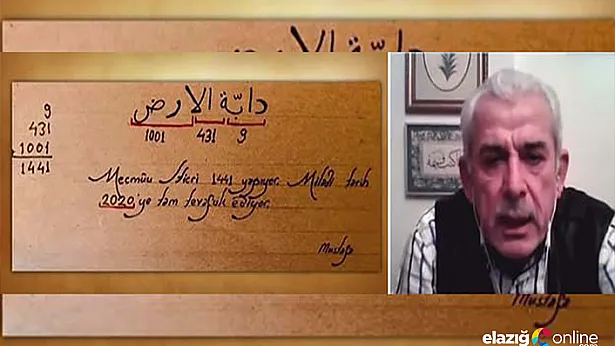 دابّة الارض
9
431
1001
1441
1001 431 9
Mecmûu Hicri 1441 yapıyor. Miladi tarih
2020'ye tam tevafuk ediyor.
Mustafa
Mustafa
elazığ online